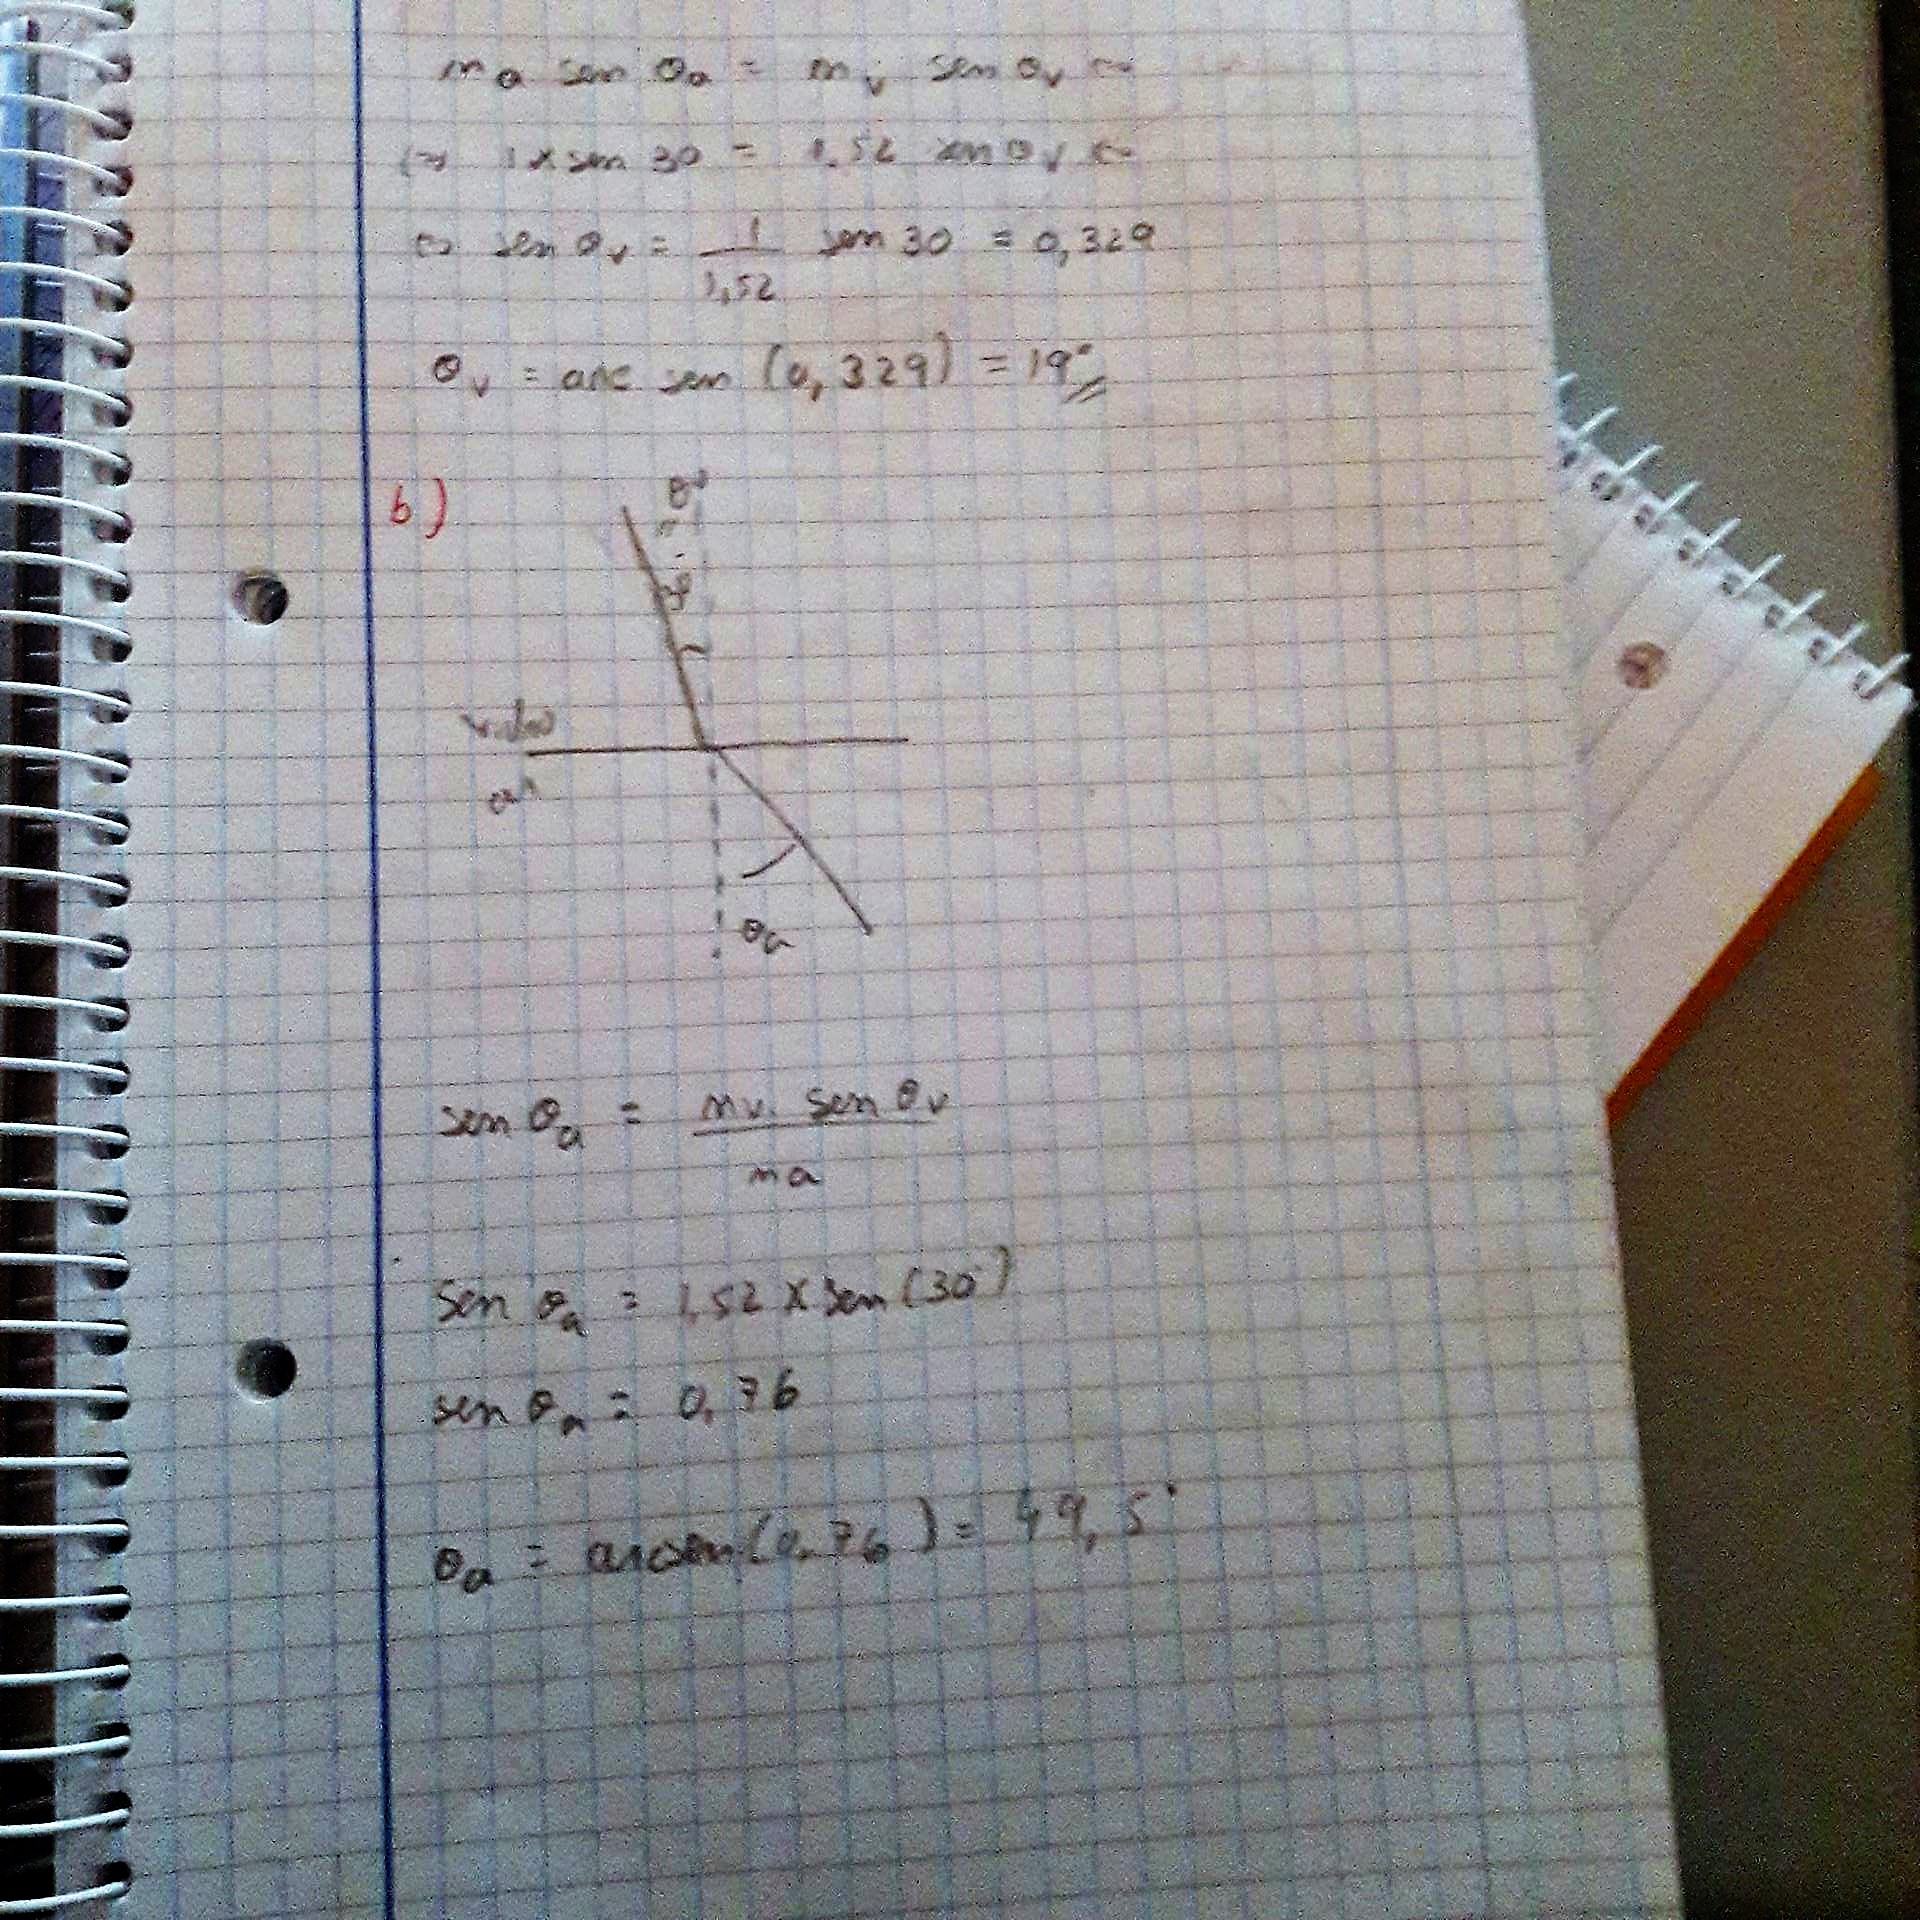 na sen θa = nv sen θv ⇔
⇔ 1 x sen 30 = 1.52 sen θv ⇔
⇔ sen θv = 1/1,52 sen 30 = 0,329
θv = arc sen (0,329) = 19°
b)
θv
vidro
ar
θa
sen θa = nv. sen θv / na
Sen θa = 1,52 x sen (30°)
sen θa = 0,76
θa = arcsen (0,76) = 49,5°